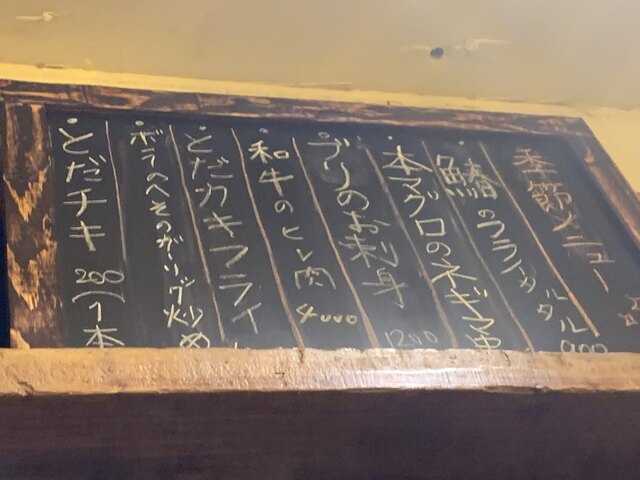 季節メニュー
鰆のフライタルタル
本マグロのネギマ串
ブリのお刺身 1200
和牛のヒレ肉 4000
とだカキフライ
ボラのへそのガーリック炒め
とだチキ 200(1本